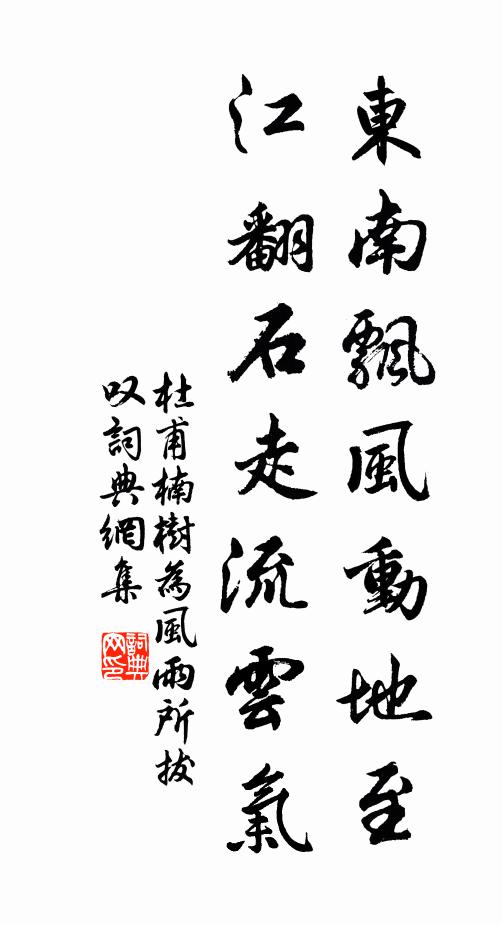 東南飄風動地至
江翻石走流雲氣
杜甫楠樹為風雨所拔
叹詞典網集
詞典
网印